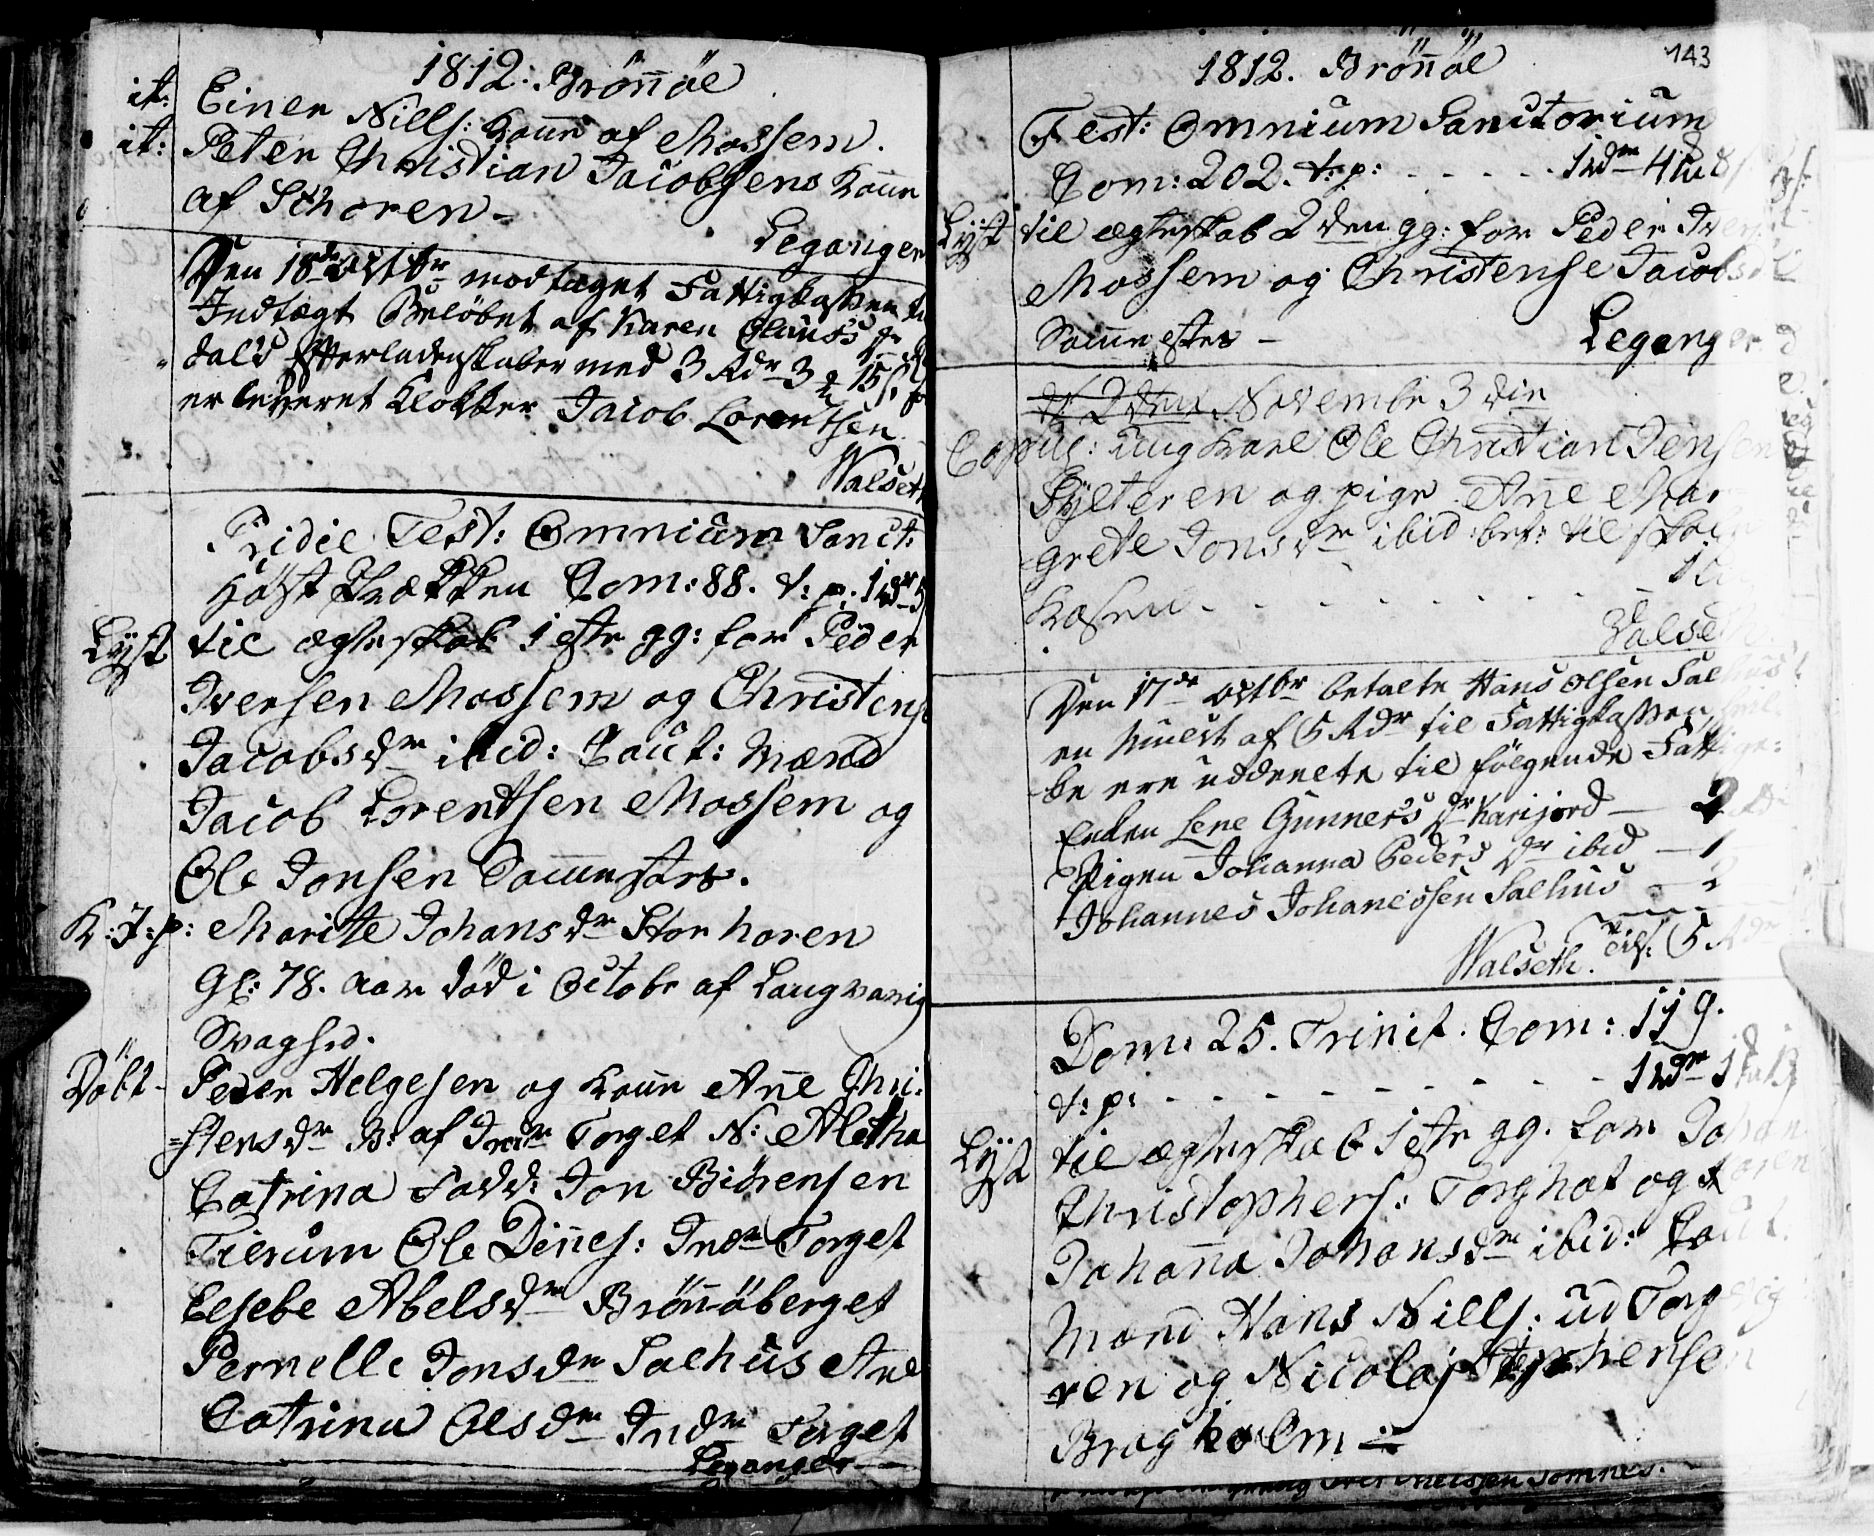 1812: Brönöe
it: Einer Nills: Kone af Mossem.
it: Peter Christian Jacobsens Kone
af Schoren -
Leganger
Den 18de Octbr modtaget Fattigkassen
Indtægt Beløbet af Karen Olaus Dr
dals Efterladenskaber med 3 Rdr 3 15 s
er leveret Klokker Jacob Lorentsen
Walseth
Pridie Fest: Omnium Sanct:
Höst Com: 88. t: p: 1 rdr
Lyst til ægteskab 1 ste gg: for Peder
Iversen Mossem og Christense
Jacobsdr ibid: Caut: Mænd
Jacob Lorentsen Mossem og
Ole Jonsen Sammestæds.
K: J: p: Marite Johansdr Storhoren
Gl: 78. Aar död i Octobr af Langvarig
Svaghed.
Döbt - Peder Helgesen og Kone Ane Chri:
=stensdr B: af Indre Torget N: Aletha
Catrina Fadd: Jon Biörensen
Tierum Ole Dines: Indr Torget
Elsebe Abelsdr Brönöberget
Pernelle Jonsdr Salhus Ane
Catrina Olsdr Indr Torget
Leganger
143
1812. Brönöe
Fest: Omnium Sanctorium
Com: 202. t: p: - - - - - 1 rdr 4
Lyst til ægteskab 2den gg: for Peder Iver
Mossem og Christense Jacobsd
Samme stæds -
Leganger
d 2den Novembr 3die
Copul: Ung Karl Ole Christian Jensen
Sylteren og pige Ane Mar
grete Jonsdr ibid: ber: til
Kasen - - - - - - - - -
Valseth
Den 17de Octbr betalte Hans Olsen Salhus
en Mulct af 5 Rdr til Fattigkassen,
be ere uddeelte til følgende Fattige:
Enken Lene Gunners Dr Karijord — 2
Pigen Johanna Peders Dr ibid — 1
Johannes Johanessen Salhus — 2
Walseth. 5 Rdr
Dom: 25. Trinit. Com: 119.
t: p: - - - - - - - - 1 rdr 1
Lyst til ægteskab 1 ste gg. for Johan
Christophers: Torghat og
Johana Johansdr ibid: Caut.
Mænd Hans Nills: ud Torg
ren og Nicolaj Stephensen
Bragholm